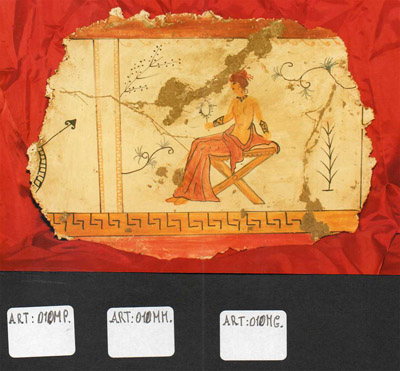 ART:010MP.
ART:010MM.
ART:010MG.